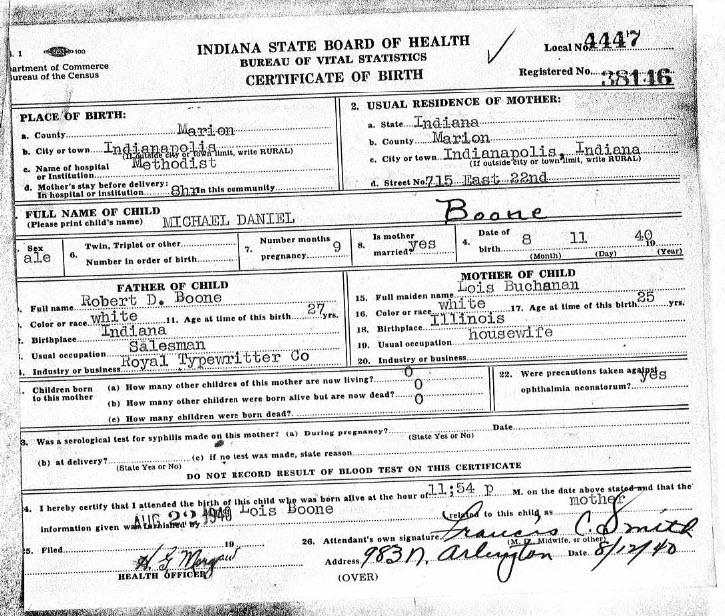 . 1 100
INDIANA STATE BOARD OF HEALTH
BUREAU OF VITAL STATISTICS
CERTIFICATE OF BIRTH
Local No. 4447
Registered No. 38146
artment of Commerce
ureau of the Census
PLACE OF BIRTH:
a. County Marion
b. City or town Indianapolis
(If outside city or town limit, write RURAL)
c. Name of hospital Methodist
or Institution
d. Mother's stay before delivery:
In hospital or institution 8hr In this community
2. USUAL RESIDENCE OF MOTHER:
a. State Indiana
b. County Marion
c. City or town Indianapolis, Indiana
(If outside city or town limit, write RURAL)
d. Street No. 715 East 22nd
FULL NAME OF CHILD
(Please print child's name) MICHAEL DANIEL Boone
. Sex ale
6. Twin, Triplet or other
Number in order of birth
7. Number months pregnancy 9
8. Is mother married? yes
4. Date of birth 8 11 19 40
(Month) (Day) (Year)
FATHER OF CHILD
. Full name Robert D. Boone
. Color or race white 11. Age at time of this birth 27 yrs.
. Birthplace Indiana
. Usual occupation Salesman
. Industry or business Royal Typewritter Co
MOTHER OF CHILD
15. Full maiden name Lois Buchanan
16. Color or race white 17. Age at time of this birth 25 yrs.
18. Birthplace Illinois
19. Usual occupation housewife
20. Industry or business
. Children born to this mother
(a) How many other children of this mother are now living? 0
(b) How many other children were born alive but are now dead? 0
(c) How many children were born dead? 0
22. Were precautions taken against ophthalmia neonatorum? yes
3. Was a serological test for syphilis made on this mother? (a) During pregnancy? Date
(State Yes or No)
(b) at delivery? (c) if no test was made, state reason
(State Yes or No)
DO NOT RECORD RESULT OF BLOOD TEST ON THIS CERTIFICATE
4. I hereby certify that I attended the birth of this child who was born alive at the hour of 11;54 p M. on the date above stated and that the
information given was furnished by Lois Boone related to this child as mother
AUG 22 1940
25. Filed 19
H G Morgan
HEALTH OFFICER
26. Attendant's own signature Francis C. Smith
(M. D. Midwife, or other)
Address 983 N. Arlington Date 8/12/40
(OVER)